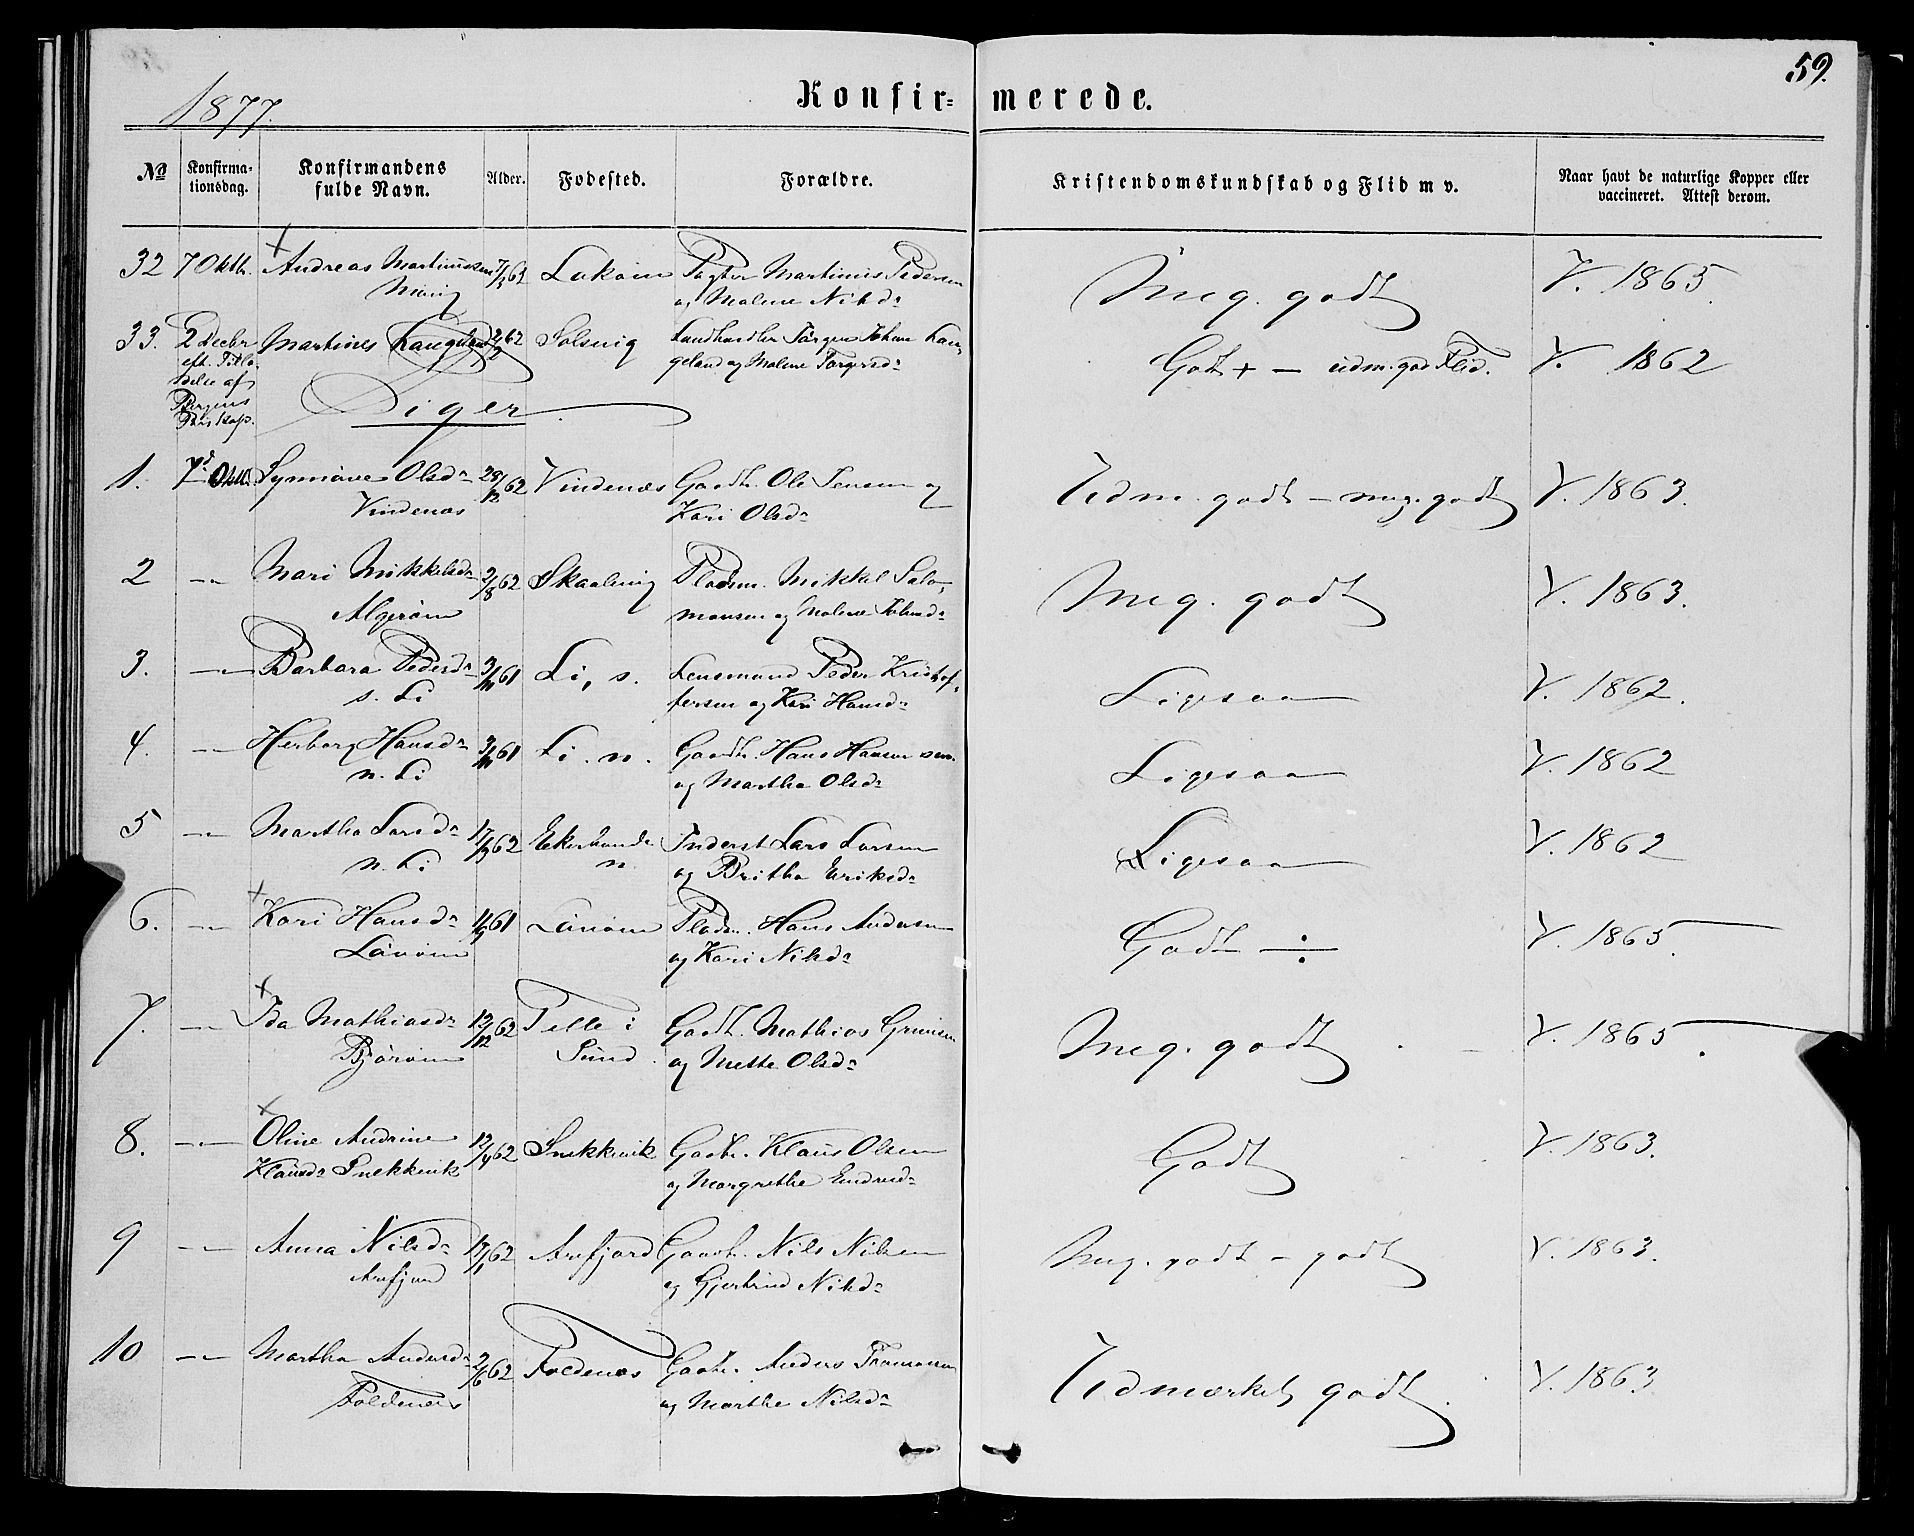 59.
1877.
Konfir= merede.
No
Konfirma-
tionsdag.
Konfirmandens
fulde Navn.
Alder.
Fødested.
Forældre.
Kristendomskundskab og Flid m v.
Naar havt de naturlige Kopper eller
vaccineret. Attest derom.
32 7 Oktb. Andreas Martinussen 7/3 62 Lokøen Pagter Martinus Pedersen Meg. godt V. 1865.
og Malene Nilsd
33. 2 Decbr Martines Langeland 62 Solsvig Landhandler Jørgen Johan Lan- Godt + — udm. god Flid. V. 1862
eft. Tilla- geland og Malene Torgersd
delse af
Bergens
Biskop.
Piger
1. 7d Oktb. Synnøve Olsd 28/12 62 Vindenæs Gaardb. Ole Jensen og Udm. godt — meg. godt V. 1863.
Vindenæs Kari Olsd
2 —"— Mari Mikkelsd 2/8 62 Skaalevig Pladsm. Mikkel Salo- Meg. godt V. 1863.
Algerøen monsen og Malene
3. —"— Barbara Pedersd 3/10 61 Li, s. Lensmand Peder Kristof- Ligesaa V. 1862.
s. Li fersen og Kari Hansd
4. —"— Herborg Hansd 3/10 61 Li. n. Gaardb. Hans Hansen sen. Ligesaa V. 1862
n. Li og Martha Olsd
5 —"— Martha Larsd 17/3 62 Ekerhovde Inderst Lars Larsen Ligesaa V. 1862
n. Li n. og Britha Eriksd
6. —"— Kari Hansd 61 Lønøen Pladsm. Hans Andersen Godt ÷ V. 1865.
Lønøen og Kari Nilsd
7. —"— Ida Mathiasd 12/12 62 Telle i Gaardb. Mathias Meg. godt V. 1865.
Bjørøen Sund. og Mette Olsd
8. —"— Oline Andrine 12/4 62 Snekkevik Gaardb. Klaus Olsen Godt V. 1863.
Klausd Snekkevik og Margrethe Endresd
9 —"— Anna Nilsd 62 Arefjord Gaardb. Nils Nilsen Meg. godt — godt V. 1863.
Arefjord og Gjertrud Nilsd
10 —"— Martha Andersd 2/6 62 Foldenæs Gaardb. Anders Udmærket godt. V. 1863
Foldenæs og Marthe Nilsd